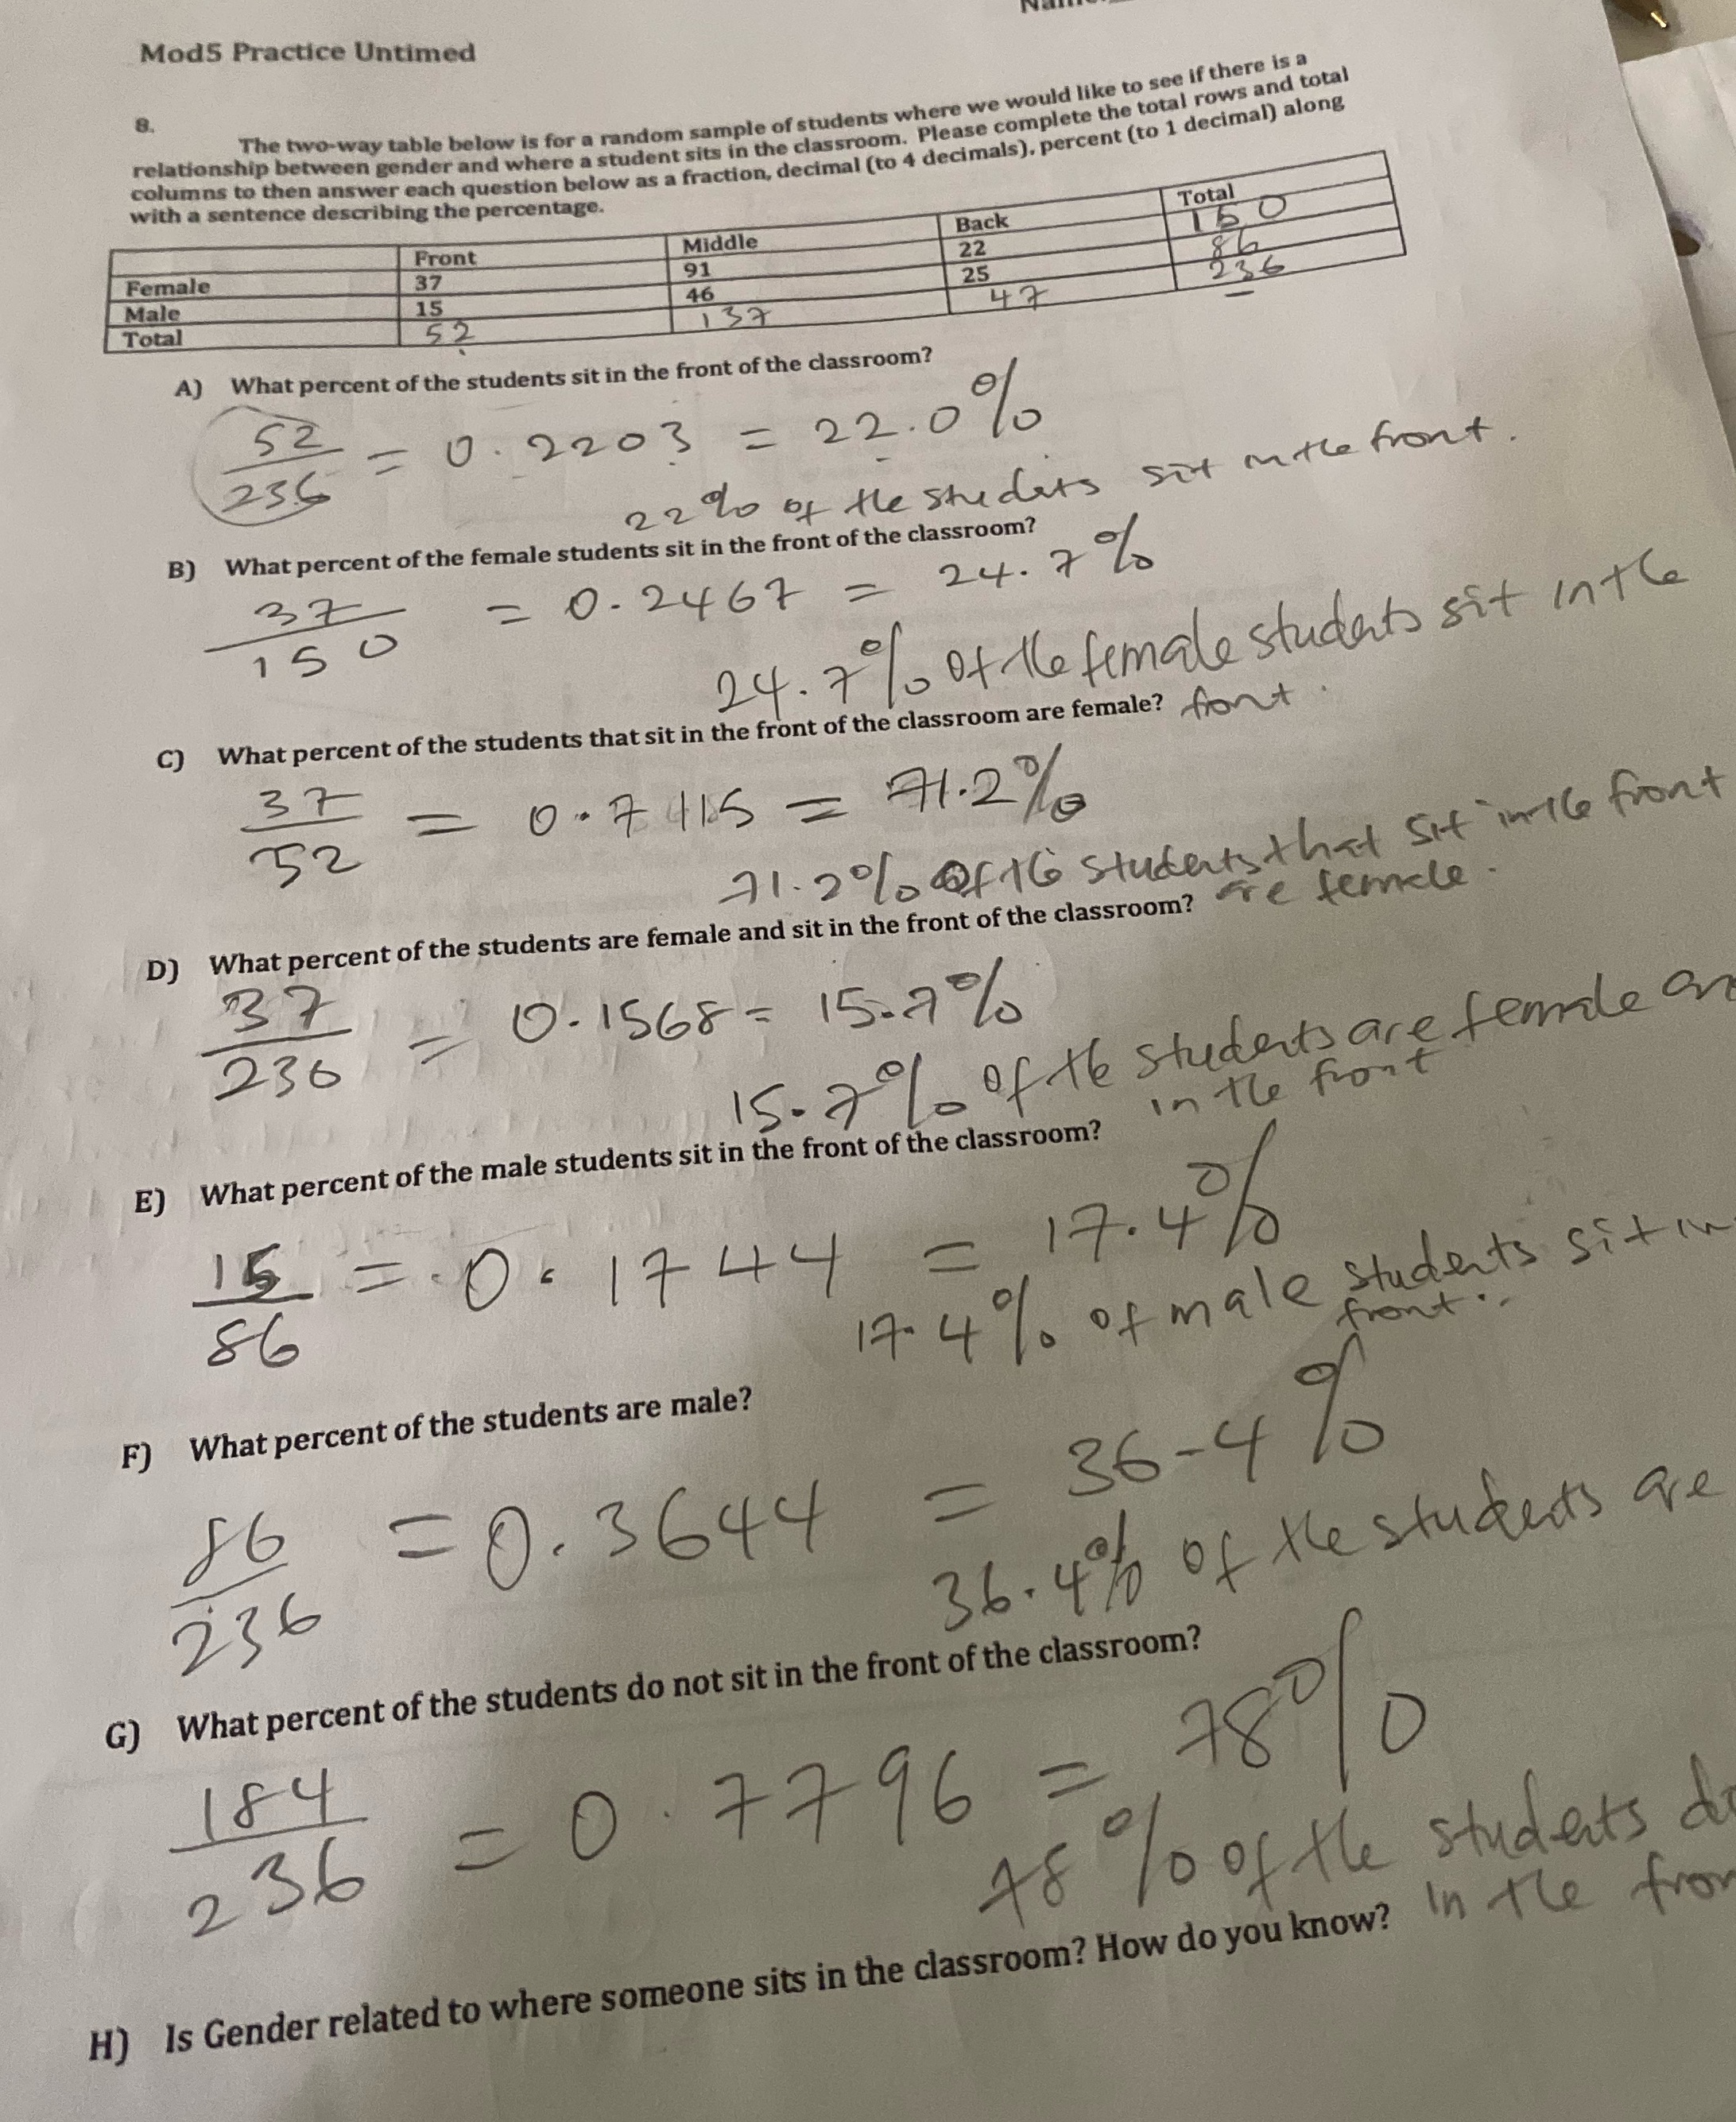 Mod5 Practice Untimed
8.
The two-way table below is for a random sample of students where we would like to see if there is a
relationship between gender and where a student sits in the classroom. Please complete the total rows and total
columns to then answer each question below as a fraction, decimal (to 4 decimals), percent (to 1 decimal) along
with a sentence describing the percentage.
Front Middle Back Total
Female 37 91 22 150
Male 15 46 25 86
Total 52 137 47 236
A) What percent of the students sit in the front of the classroom?
52/236 = 0.2203 = 22.0%
22% of the students sit in the front.
B) What percent of the female students sit in the front of the classroom?
37/150 = 0.2467 = 24.7%
24.7% of the female students sit in the
front.
C) What percent of the students that sit in the front of the classroom are female?
37/52 = 0.7115 = 71.2%
71.2% of the students that sit in the front
are female.
D) What percent of the students are female and sit in the front of the classroom?
37/236 = 0.1568 = 15.7%
15.7% of the students are female
in the front
E) What percent of the male students sit in the front of the classroom?
15/86 = 0.1744 = 17.4%
17.4% of male students sit in
front.
F) What percent of the students are male?
86/236 = 0.3644 = 36.4%
36.4% of the students are
G) What percent of the students do not sit in the front of the classroom?
184/236 = 0.7796 = 78%
78% of the students do
in the fron
H) Is Gender related to where someone sits in the classroom? How do you know?